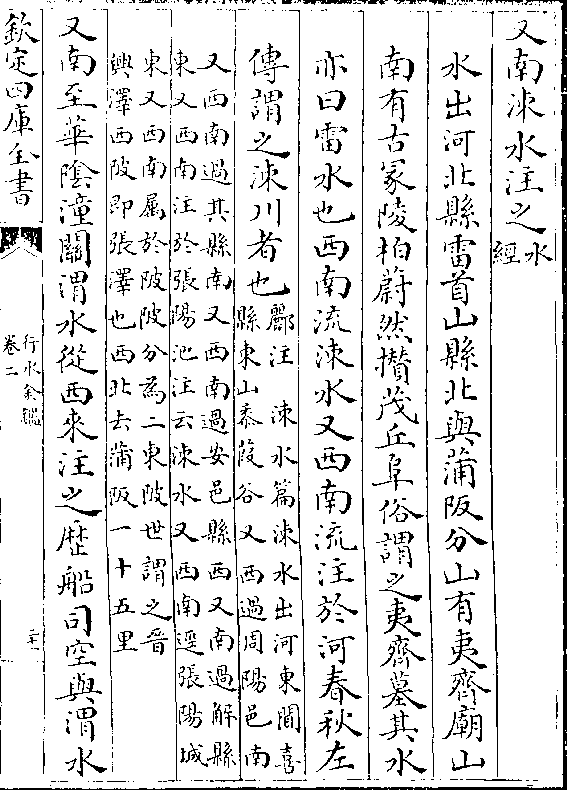 又南涑水注之水經
水出河北縣雷首山縣北與蒲阪分山有夷齊廟山
南有古冢陵柏蔚然攅茂丘阜俗謂之夷齊墓其水
亦曰雷水也西南流涑水又西南流注於河春秋左
傳謂之涑川者也酈注涑水篇涑水出河東聞喜
縣東山黍葭谷又西過周陽邑南
又西南過其縣南又西南過安邑縣西又南過解縣
東又西南注於張陽池注云涑水又西南逕張陽城
東又西南属於陂陂分為二東陂世謂之晉
興澤西陂即張澤也西北去蒲阪一十五里
又南至華陰潼關渭水從西來注之歴船司空與渭水
欽定四庫全書
行水金鑑
卷二